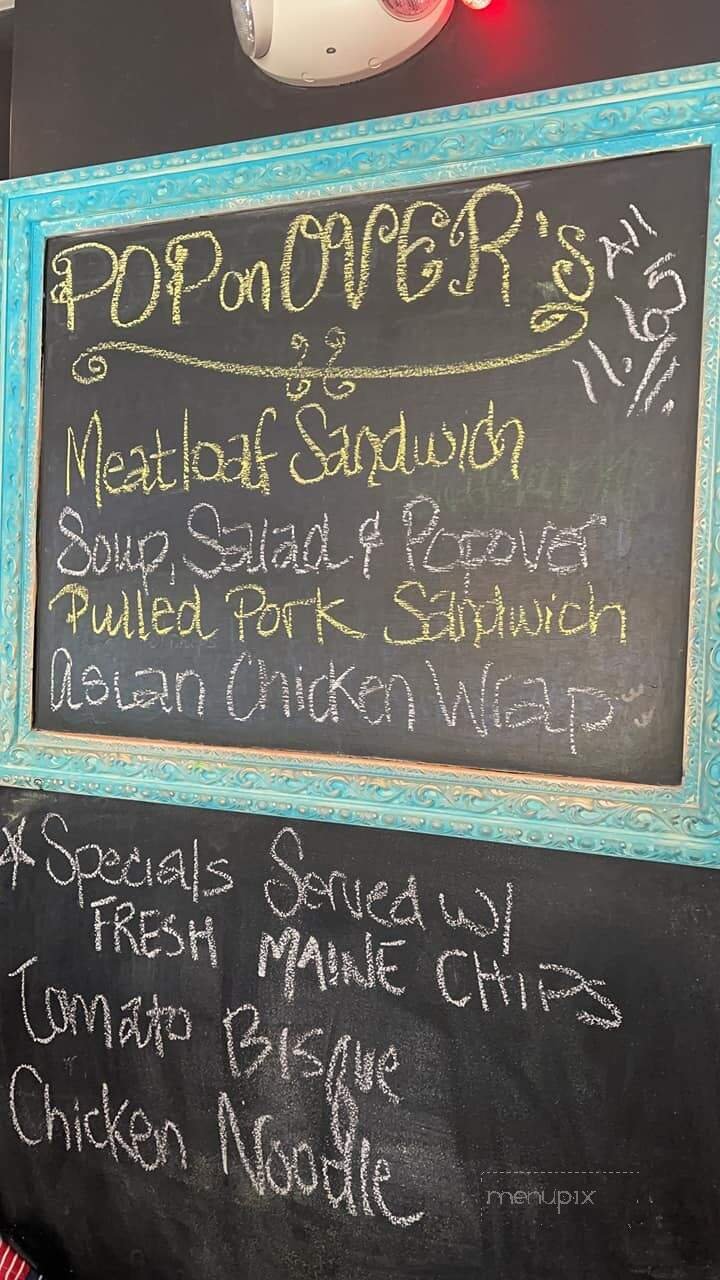 POP on OVER's
All
11.65
Meatloaf Sandwich
Soup, Salad & Popover
Pulled Pork Sandwich
Asian Chicken Wrap
*Specials Served w/
FRESH MAINE CHIPS
Tomato Bisque
Chicken Noodle
menupix